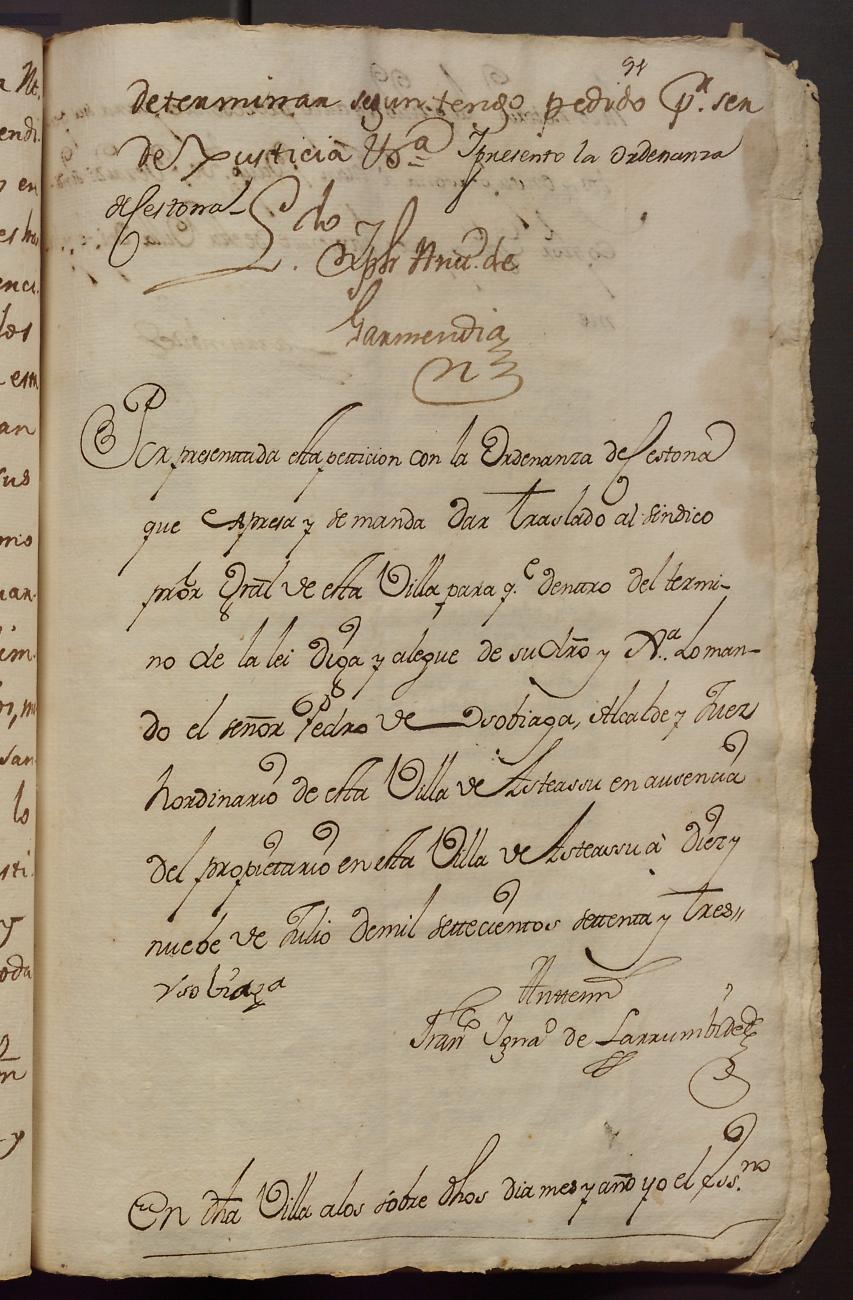 94
determinar segun tengo pedido p.r ser
de Justicia V.a Y presento la ordenanza
de Sestona
Jph Anto. de
Garmendia
Por presentada esta peticion con la Ordenanza de Sestona
que expresa y se manda dar traslado al sindico
prōr Gral de esta Villa para q.e dentro del termi-
no de la lei diga y alegue de su dr̄o y A.a Lo man-
do el señor Pedro de Vsobiaga, Alcalde y Juez
hordinario de esta Villa de Asteassu en ausencia
del propietario en esta Villa de Asteassu à diez y
nuebe de Julio de mil settecientos settenta y tres,,
Vsobiaga
Anttemi
Fran.co Igna.o de Larrumbide
En dha Villa a los sobre dhos dia mes y año yo el Ess.no